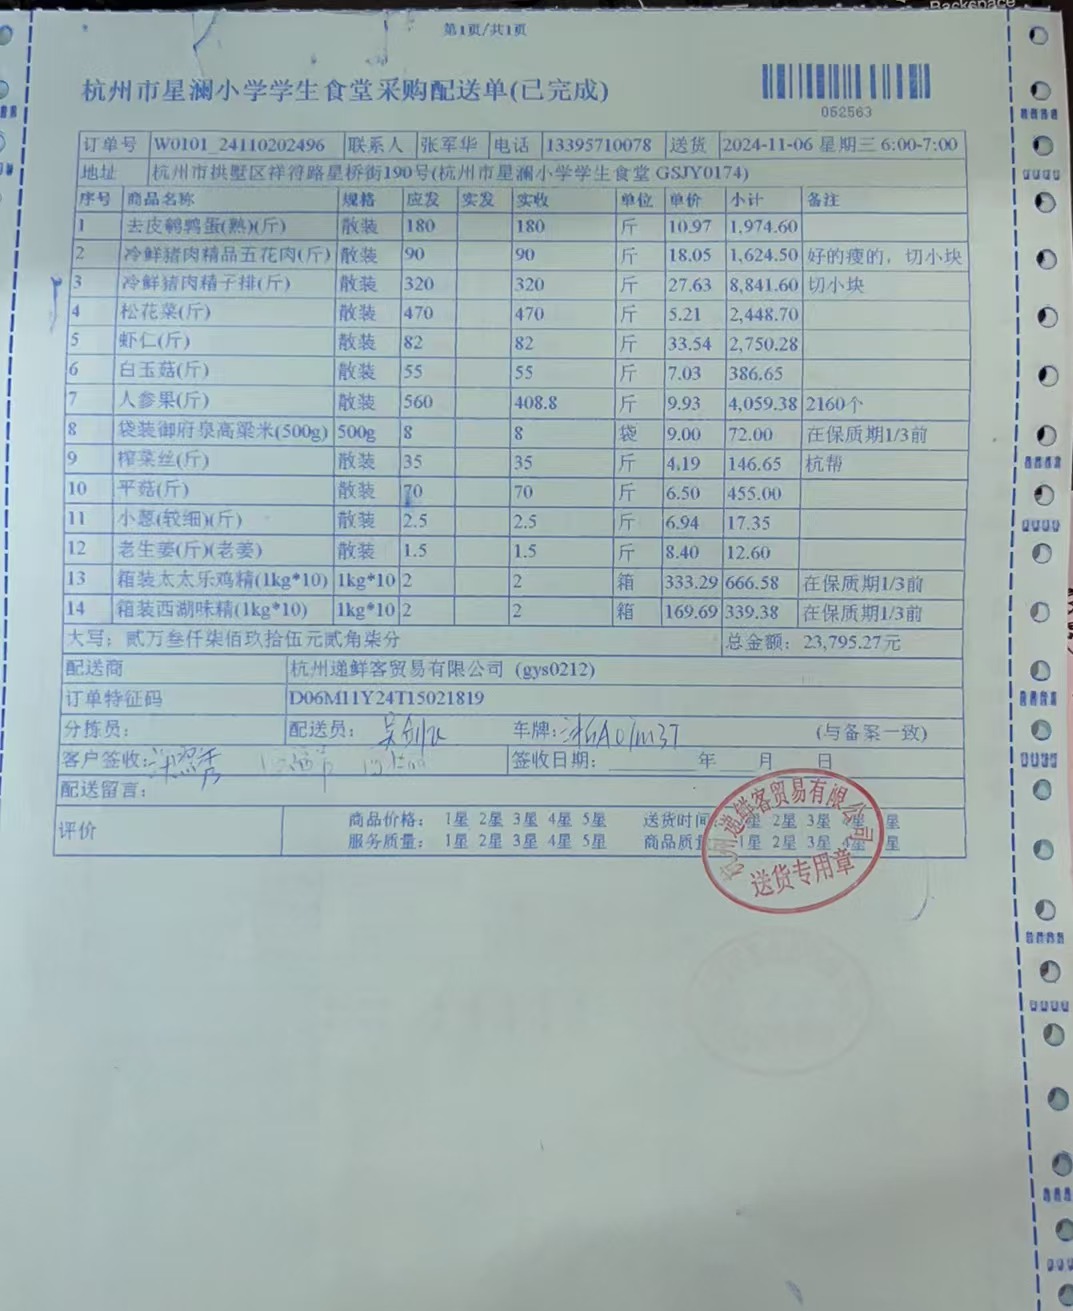 Backspace
第1页/共1页
杭州市星澜小学学生食堂采购配送单(已完成)
052563
订单号 W0101_24110202496 联系人 张军华 电话 13395710078 送货 2024-11-06 星期三 6:00-7:00
地址 杭州市拱墅区祥符路星桥街190号(杭州市星澜小学学生食堂 GSJY0174)
序号 商品名称 规格 应发 实发 实收 单位 单价 小计 备注
1 去皮鹌鹑蛋(熟)(斤) 散装 180 180 斤 10.97 1,974.60
2 冷鲜猪肉精品五花肉(斤) 散装 90 90 斤 18.05 1,624.50 好的瘦的，切小块
3 冷鲜猪肉精子排(斤) 散装 320 320 斤 27.63 8,841.60 切小块
4 松花菜(斤) 散装 470 470 斤 5.21 2,448.70
5 虾仁(斤) 散装 82 82 斤 33.54 2,750.28
6 白玉菇(斤) 散装 55 55 斤 7.03 386.65
7 人参果(斤) 散装 560 408.8 斤 9.93 4,059.38 2160个
8 袋装御府泉高粱米(500g) 500g 8 8 袋 9.00 72.00 在保质期1/3前
9 榨菜丝(斤) 散装 35 35 斤 4.19 146.65 杭帮
10 平菇(斤) 散装 70 70 斤 6.50 455.00
11 小葱(较细)(斤) 散装 2.5 2.5 斤 6.94 17.35
12 老生姜(斤)(老姜) 散装 1.5 1.5 斤 8.40 12.60
13 箱装太太乐鸡精(1kg*10) 1kg*10 2 2 箱 333.29 666.58 在保质期1/3前
14 箱装西湖味精(1kg*10) 1kg*10 2 2 箱 169.69 339.38 在保质期1/3前
大写：贰万叁仟柒佰玖拾伍元贰角柒分 总金额：23,795.27元
配送商 杭州递鲜客贸易有限公司 (gys0212)
订单特征码 D06M11Y24T15021819
分拣员： 配送员： 车牌： (与备案一致)
客户签收： 签收日期： 年 月 日
配送留言：
评价 商品价格： 1星 2星 3星 4星 5星 送货时间 星 2星 3星 星 星
服务质量： 1星 2星 3星 4星 5星 商品质量 1星 2星 3星 4星 星
杭州递鲜客贸易有限公司
送货专用章